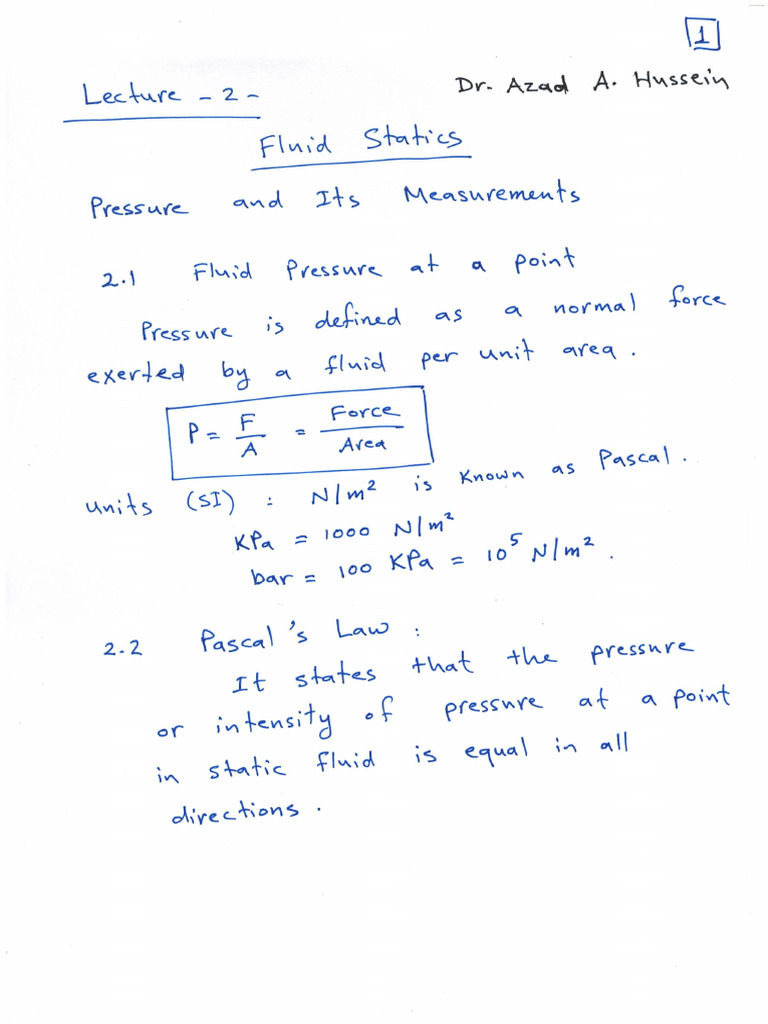 1
Lecture - 2 -
Dr. Azad A. Hussein
Fluid Statics
Pressure and Its Measurements
2.1 Fluid Pressure at a point
Pressure is defined as a normal force
exerted by a fluid per unit area.
P = F/A = Force/Area
units (SI) : N/m² is known as Pascal.
KPa = 1000 N/m²
bar = 100 KPa = 10⁵ N/m².
2.2 Pascal's Law :
It states that the pressure
or intensity of pressure at a point
in static fluid is equal in all
directions.